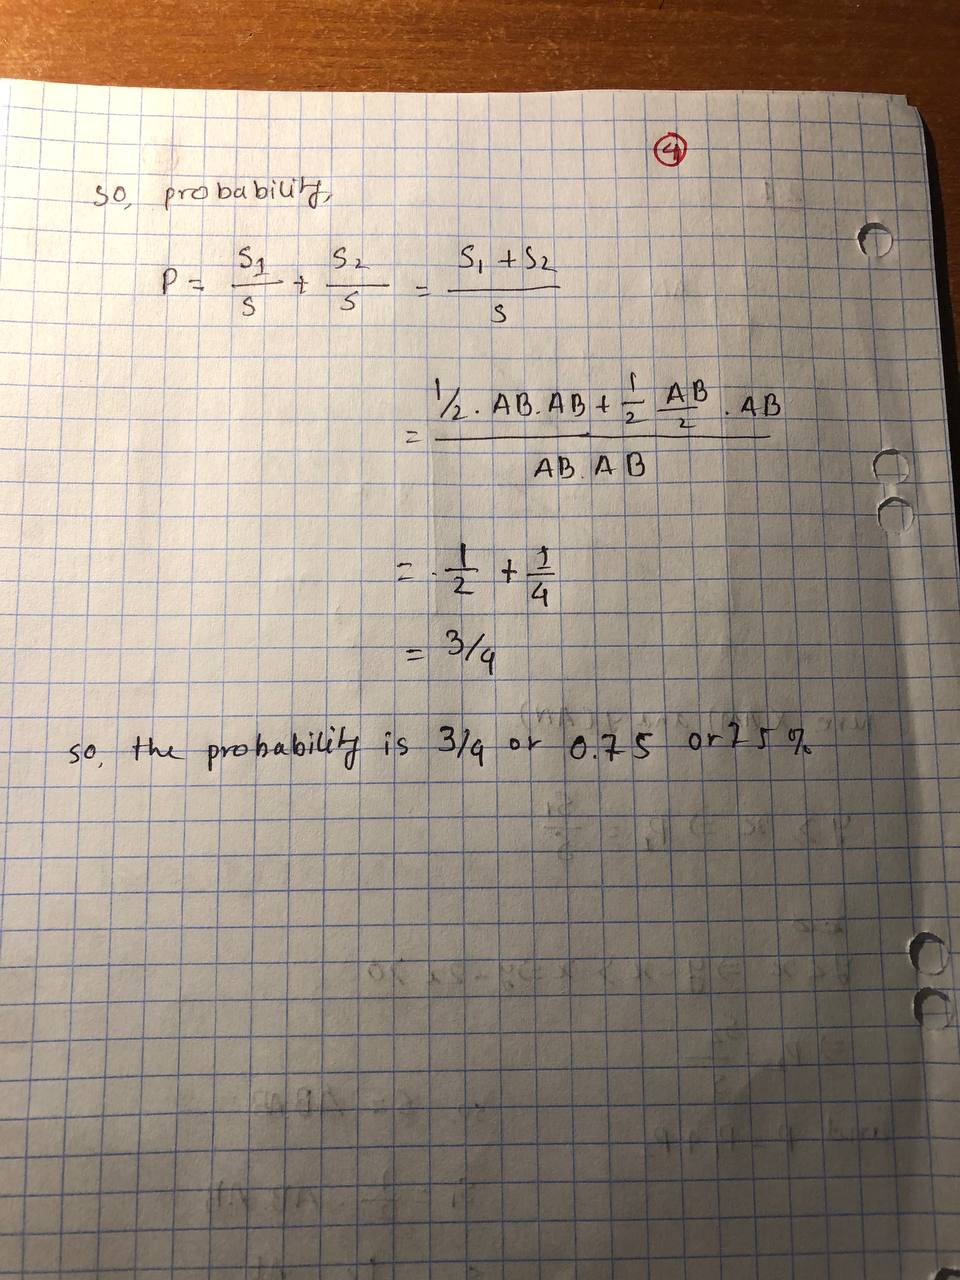 4
so, probability,
P = S1/S + S2/S = S1 + S2/S
= 1/2 . AB . AB + 1/2 AB/2 . AB / AB . AB
= 1/2 + 1/4
= 3/4
so, the probability is 3/4 or 0.75 or 75 %